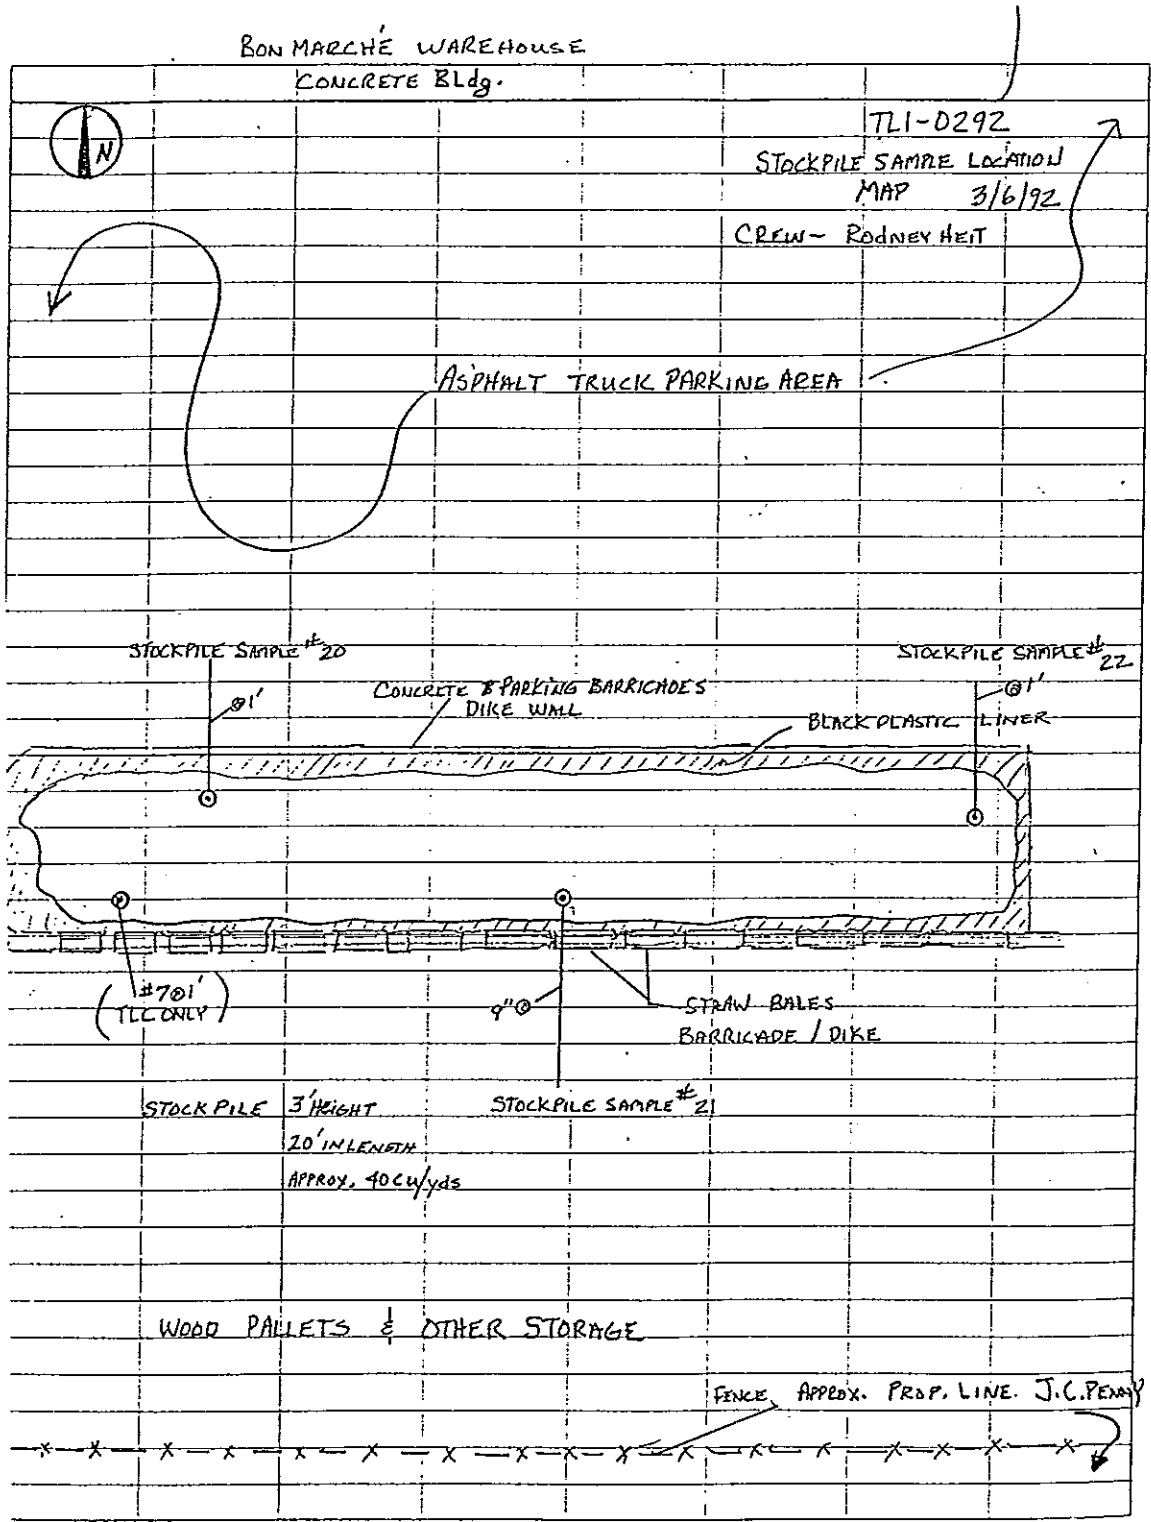 BON MARCHÉ WAREHOUSE
CONCRETE BLdg.
N
TLI-0292
STOCKPILE SAMPLE LOCATION
MAP 3/6/92
CREW- RODNEY HEIT
ASPHALT TRUCK PARKING AREA
STOCKPILE SAMPLE #20
@1'
STOCKPILE SAMPLE #22
@1'
CONCRETE & PARKING BARRICADES
DIKE WALL
BLACK PLASTIC LINER
(#7@1'
TLC ONLY)
9"@
STRAW BALES
BARRICADE / DIKE
STOCKPILE 3' HEIGHT
20' IN LENGTH
APPROX. 40 CU/yds
STOCKPILE SAMPLE #21
WOOD PALLETS & OTHER STORAGE
FENCE APPROX. PROP. LINE. J.C. PENNY